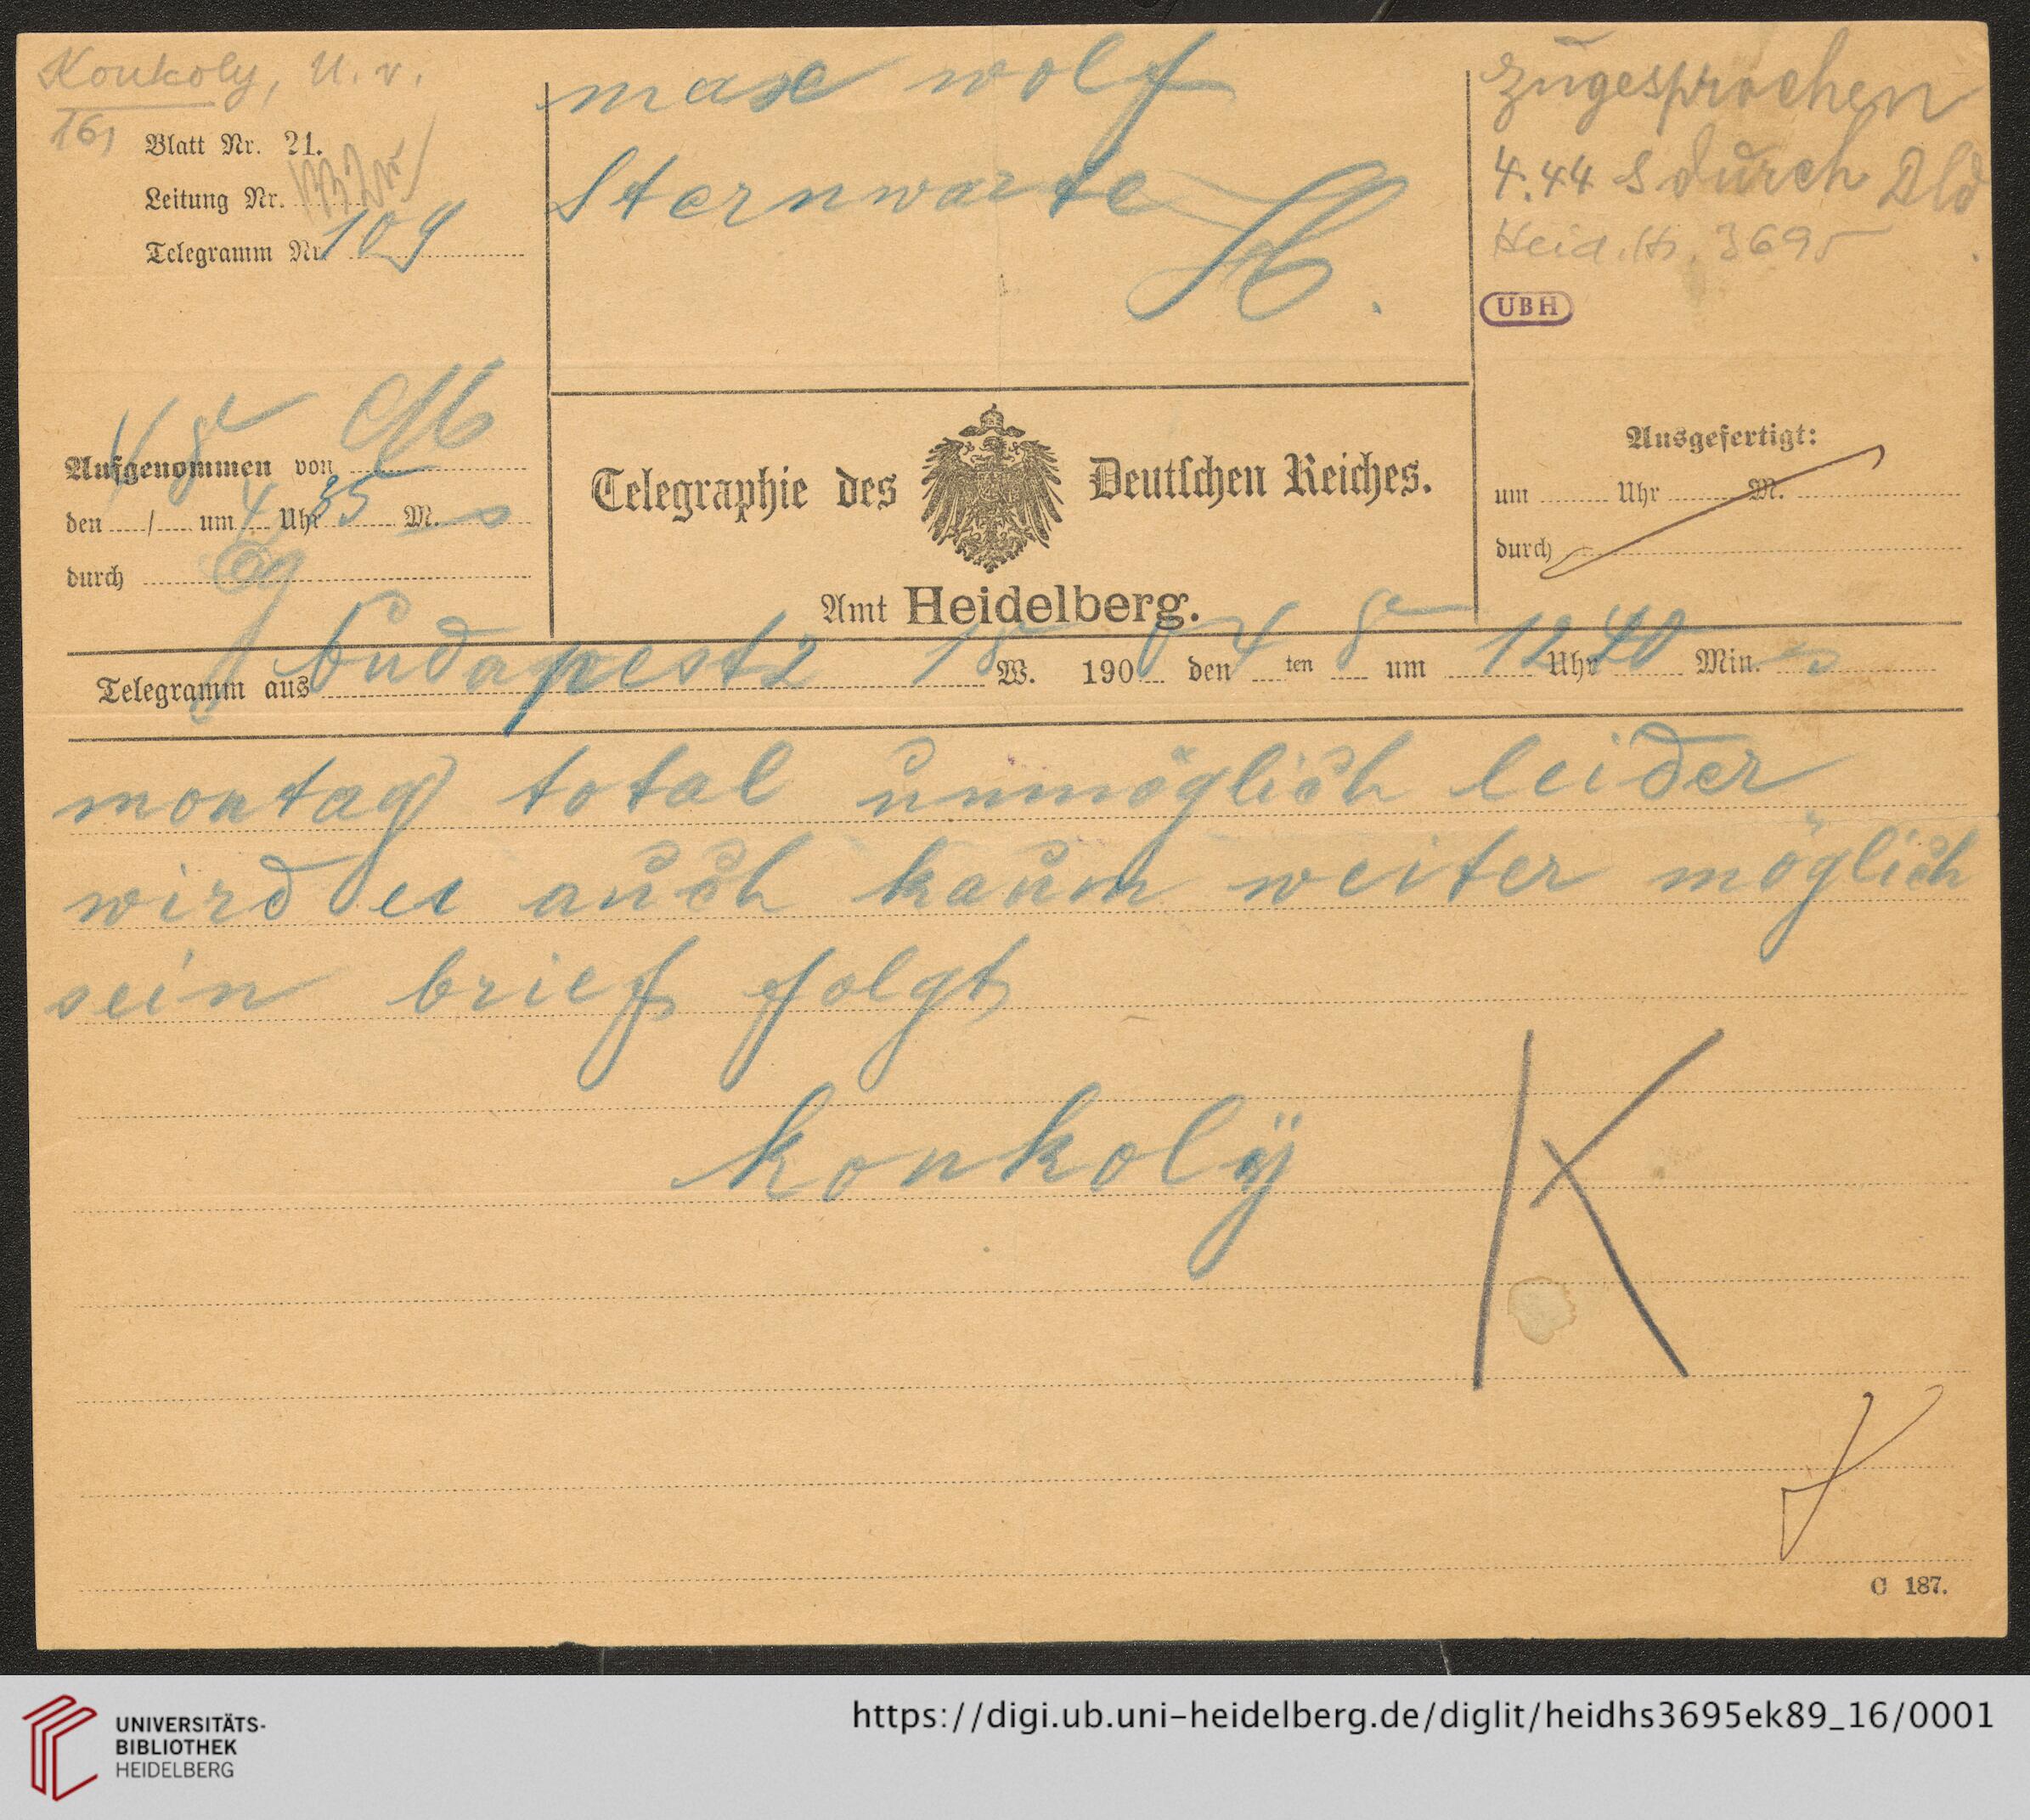 Konkoly, U. v.
16,
Blatt Nr. 21.
Leitung Nr.
Telegramm Nr. 109
max wolf
Sternwarte
H.
zugesprochen
4.44 S durch
Heid. Hs. 3695
UBH
Aufgenommen von
den / um 4 Uhr 35 M. s
durch
Telegraphie des Deutschen Reiches.
Amt Heidelberg.
Ausgefertigt:
um Uhr M.
durch
Telegramm aus budapest 2 18 W. 190 den 4 ten 8 um 12 Uhr 40 Min. s
montag total unmöglich leider
wird es auch kaum weiter möglich
sein brief folgt
konkoly
K
C 187.
UNIVERSITÄTS-
BIBLIOTHEK
HEIDELBERG
https://digi.ub.uni-heidelberg.de/diglit/heidhs3695ek89_16/0001